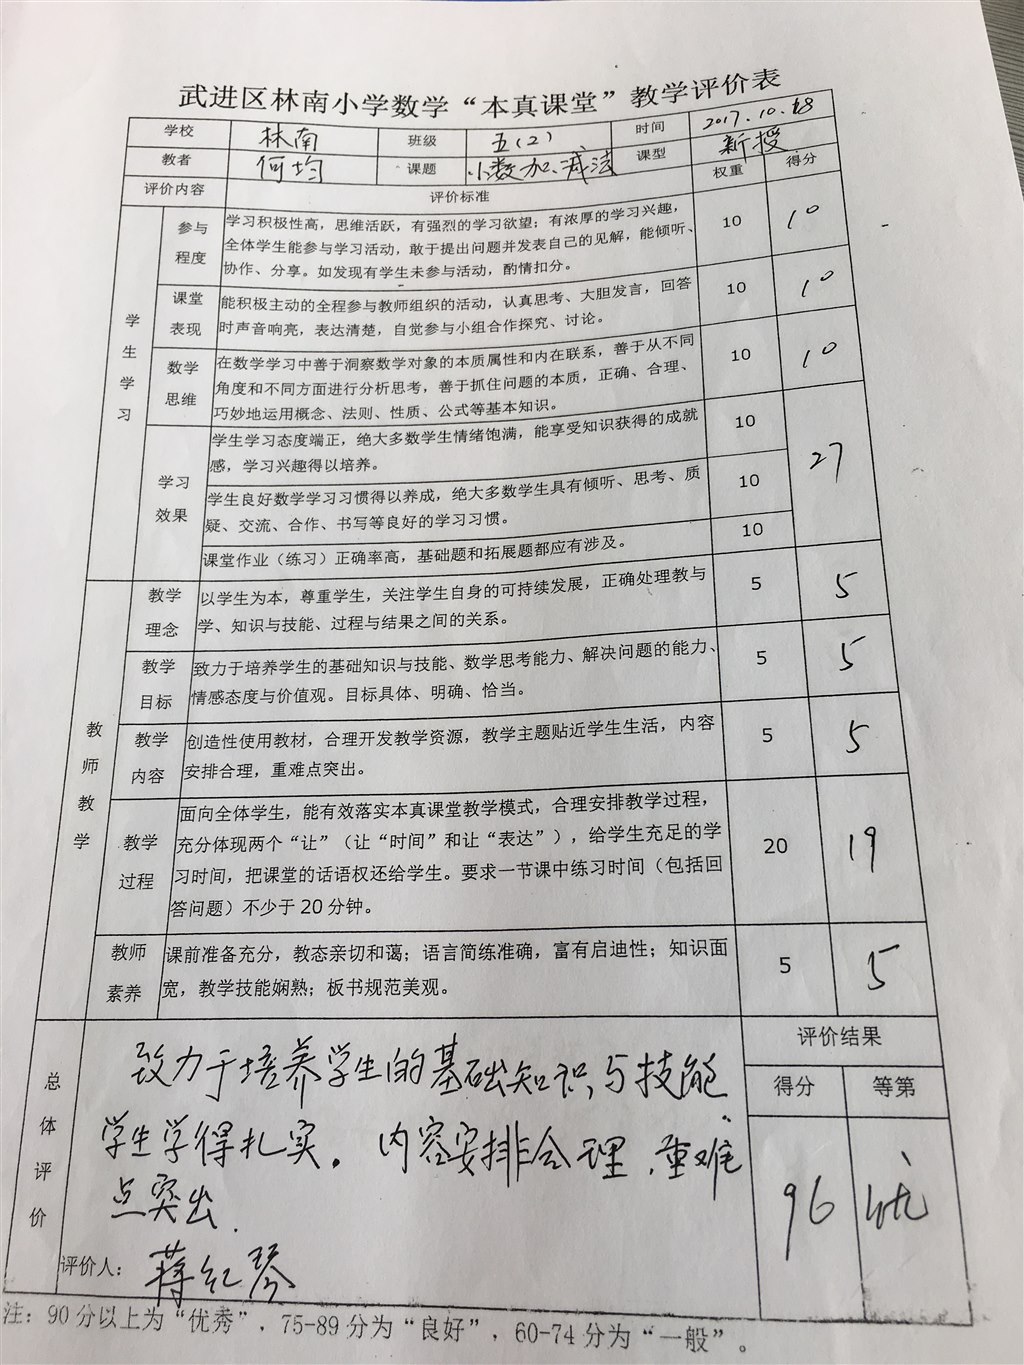 武进区林南小学数学“本真课堂”教学评价表
学校 林南 班级 五(2) 时间 2017.10.18
教者 何均 课题 小数加、减法 课型 新授
评价内容 评价标准 权重 得分
学生学习
参与程度
学习积极性高，思维活跃，有强烈的学习欲望；有浓厚的学习兴趣，
全体学生能参与学习活动，敢于提出问题并发表自己的见解，能倾听、
协作、分享。如发现有学生未参与活动，酌情扣分。
10 10
课堂表现
能积极主动的全程参与教师组织的活动，认真思考、大胆发言，回答
时声音响亮，表达清楚，自觉参与小组合作探究、讨论。
10 10
数学思维
在数学学习中善于洞察数学对象的本质属性和内在联系，善于从不同
角度和不同方面进行分析思考，善于抓住问题的本质，正确、合理、
巧妙地运用概念、法则、性质、公式等基本知识。
10 10
学习效果
学生学习态度端正，绝大多数学生情绪饱满，能享受知识获得的成就
感，学习兴趣得以培养。
10
学生良好数学学习习惯得以养成，绝大多数学生具有倾听、思考、质
疑、交流、合作、书写等良好的学习习惯。
10
课堂作业（练习）正确率高，基础题和拓展题都应有涉及。
10
27
教师教学
教学理念
以学生为本，尊重学生，关注学生自身的可持续发展，正确处理教与
学、知识与技能、过程与结果之间的关系。
5 5
教学目标
致力于培养学生的基础知识与技能、数学思考能力、解决问题的能力、
情感态度与价值观。目标具体、明确、恰当。
5 5
教学内容
创造性使用教材，合理开发教学资源，教学主题贴近学生生活，内容
安排合理，重难点突出。
5 5
教学过程
面向全体学生，能有效落实本真课堂教学模式，合理安排教学过程，
充分体现两个“让”（让“时间”和让“表达”），给学生充足的学
习时间，把课堂的话语权还给学生。要求一节课中练习时间（包括回
答问题）不少于20分钟。
20 19
教师素养
课前准备充分，教态亲切和蔼；语言简练准确，富有启迪性；知识面
宽，教学技能娴熟；板书规范美观。
5 5
总体评价
致力于培养学生的基础知识与技能
学生学得扎实。内容安排合理，重难
点突出.
评价人：蒋红琴
评价结果
得分 等第
96 优
注：90分以上为“优秀”，75-89分为“良好”，60-74分为“一般”。